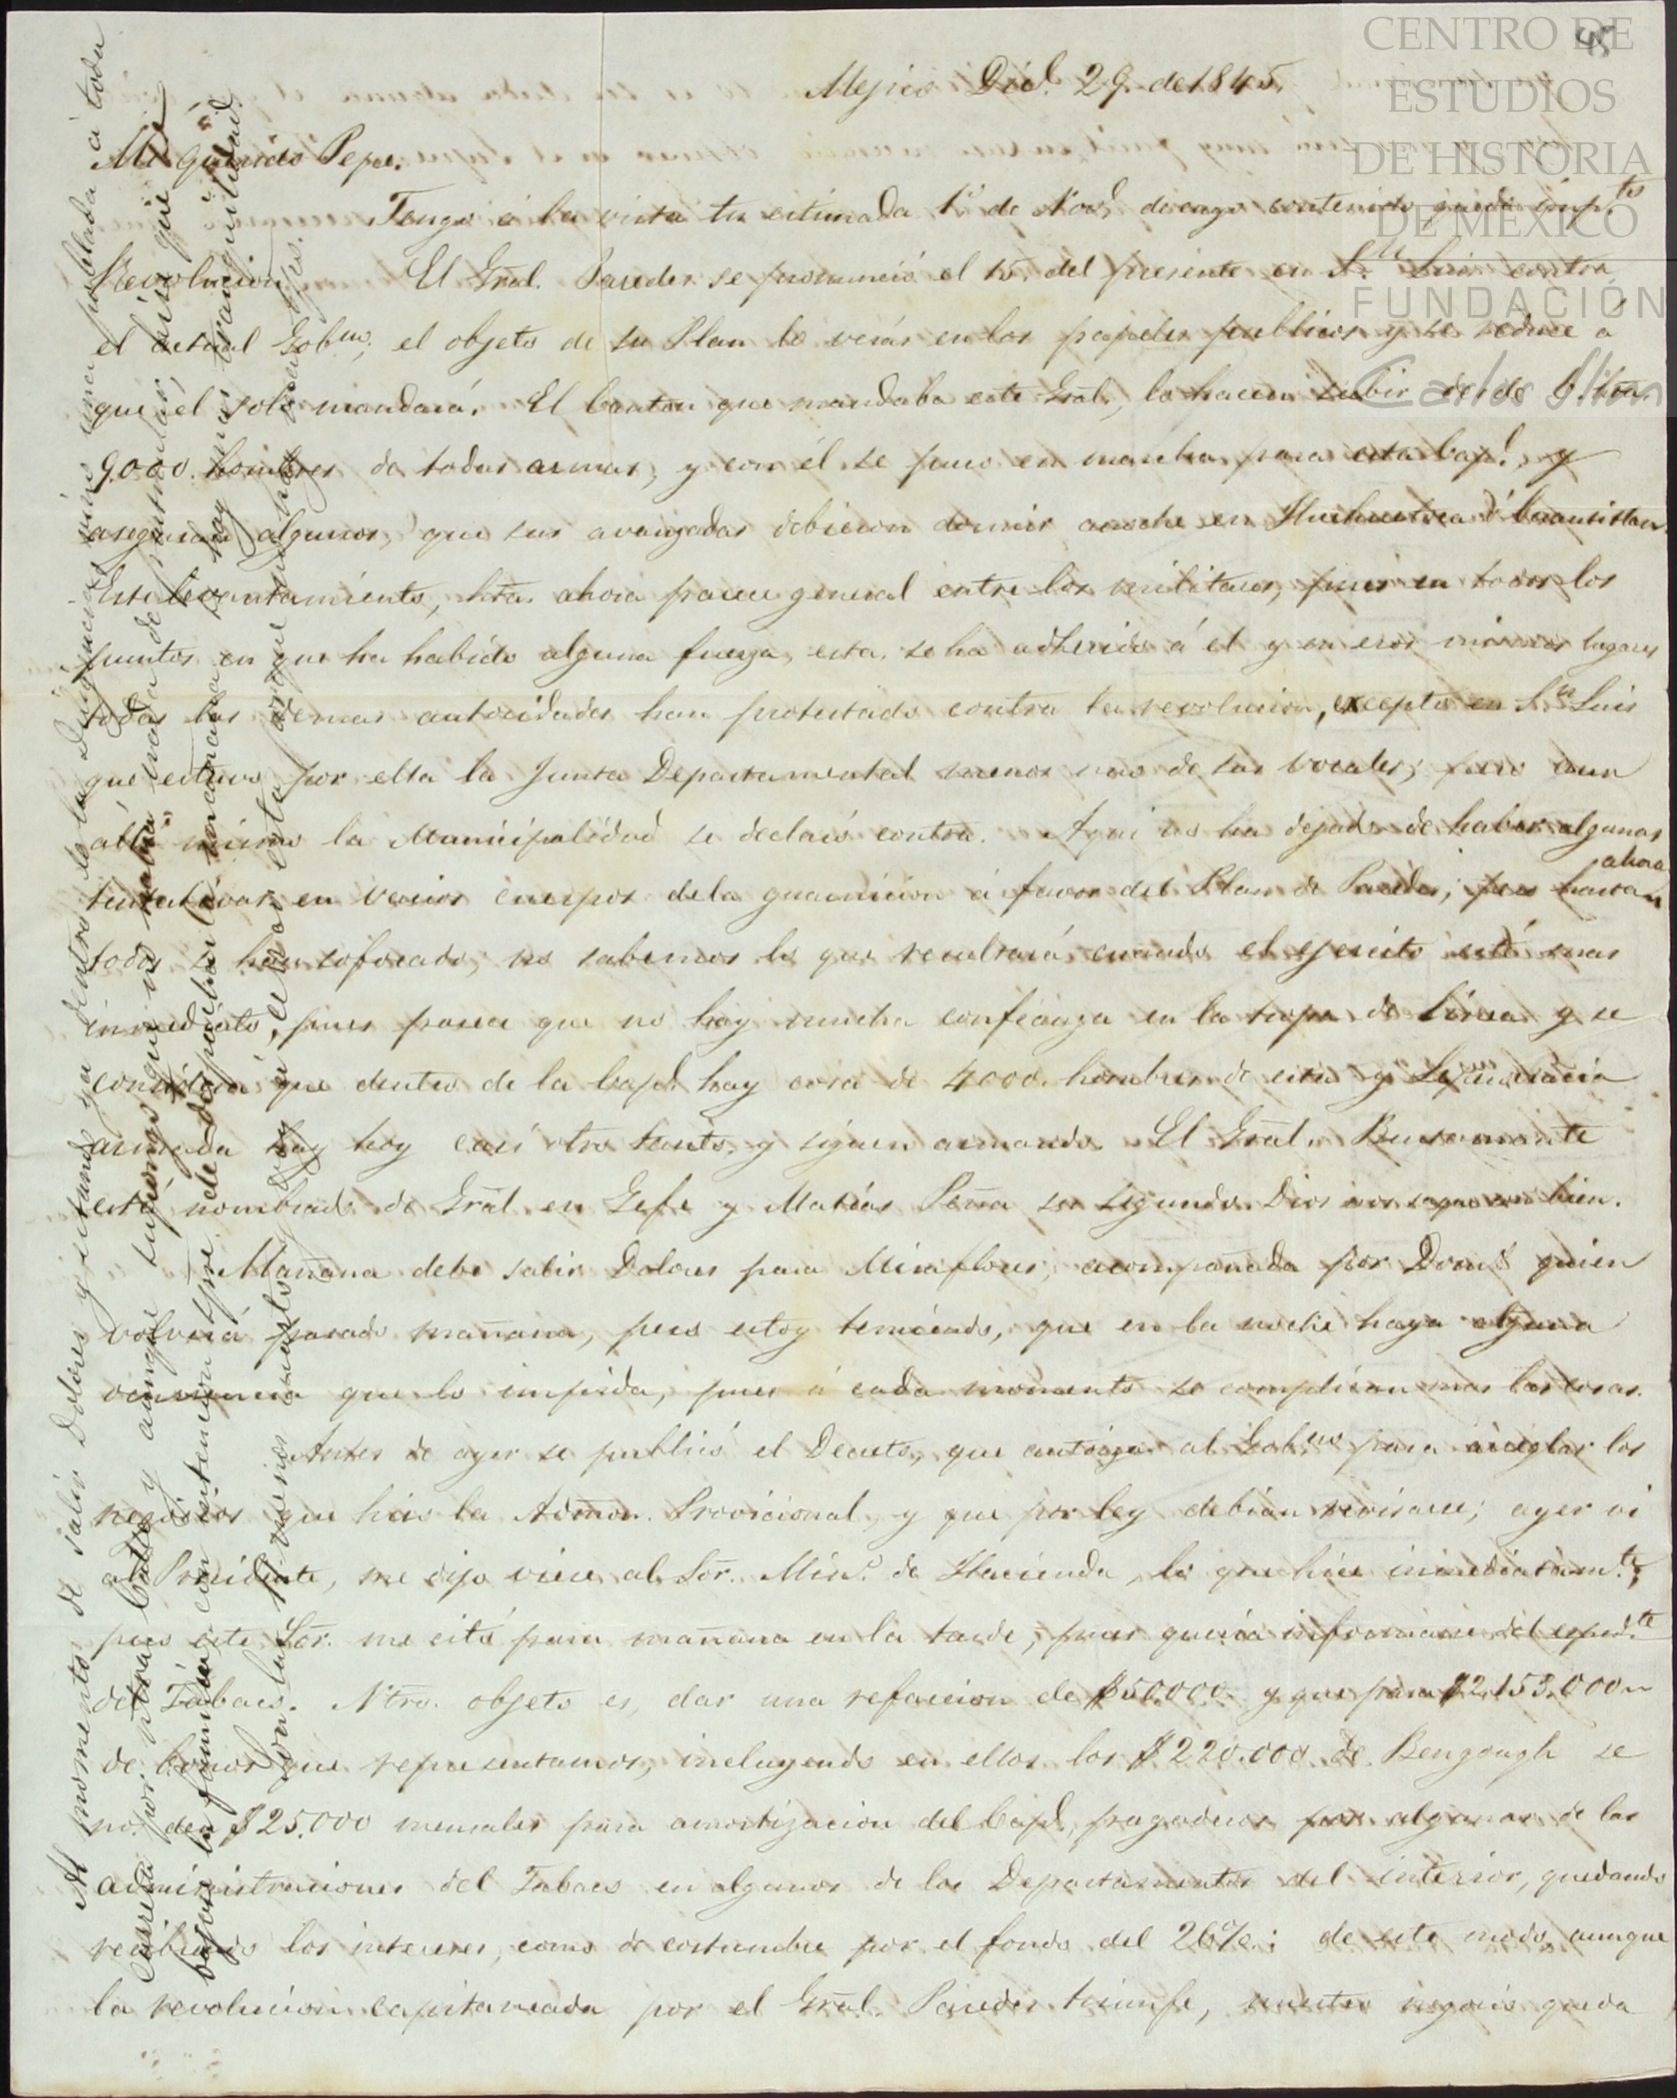 CENTRO DE
ESTUDIOS
DE HISTORIA
DE MÉXICO
FUNDACIÓN
Carlos Slim
45
Mejico Dic.e 29. de 1845.
Mi querido Pepe.
Tengo á la vista tu estimada 1º de Nov.e de cuyo contenido quedo imp.to
Revolucion El Gral. Paredes se pronunció el 15. del presente en S.n Luis contra
el actual Gob.no; el objeto de su Plan lo verás en los papeles publicos y se reduce á
que él solo mandará. El Canton que mandaba este Gral, lo hacen subir desde 6 hta.
9.000. hombres de todas armas, y con él se puso en marcha para esta Cap.l, y
aseguran algunos, que sus avanzadas debieron dormir anoche en Huehuetoca ó Cuautitlan.
Este levantamiento, hta. ahora parece general entre los militares, pues en todos los
puntos en que ha habido alguna fuerza, esta se ha adherido á el y en esos mismos lugares
todas las demas autoridades han protestado contra la revolucion, excepto en S.n Luis
que estuvo por ella la Junta Departamental menos uno de sus vocales; pero aun
allí mismo la Municipalidad se declaró contra. Aquí no ha dejado de haber algunas
tentativas en varios cuerpos de la guarnicion á favor del Plan de Paredes; pero hasta ahora
todas se han sofocado; no sabemos lo que resultará cuando el ejercito esté mas
inmediato, pues parece que no hay mucha confianza en la tropa de linea y se
considera que dentro de la Cap.l hay cosa de 4000. hombres de esta y
armada hay hoy casi otro tanto, y siguen armando. El Gral. Bustamante
está nombrado de Gral en Gefe y Matías Peña su segundo. Dios nos saque con bien.
Mañana debe salir Dolores para Miraflores, acompañada por Dom.o quien
volverá pasado mañana, pero estoy temiendo, que en la noche haya alguna
ocurrencia que lo impida, pues á cada momento se complican mas las cosas.
Antes de ayer se publicó el Decreto, que autoriza al Gob.no para arreglar los
negocios que hizo la Admon. Provicional, y que por ley debian revisarse; ayer vi
al Presidente, me dijo viese al Sor. Min.o de Hacienda, lo que hice inmediatam.te,
pero este Sor. me citó para mañana en la tarde, pues queria informarse del esped.te
del Tabaco. Ntro. objeto es, dar una refaccion de $50.000 y que para $2.153.000
de bonos que representamos, incluyendo en ellos los $220.000 de Bengough se
nos den $25.000 mensales para amortizacion del Cap.l, pagaderos por algunas de las
administraciones del Tabaco en algunos de los Departamentos del interior, quedando
recibiendo los intereses, como de costumbre por el fondo del 26%: de este modo, aunque
la revolucion capitaneada por el Gral. Paredes triunfe, nuestro negocio queda
Al momento de salir Dolores y estando ya dentro de la Diligencia vino una poblada á toda
carrera por y aunque supiones que no habia nada de particular, hizo que
bajara la familia con intencion que de depositarla mañana si hay mas tranquilidad.